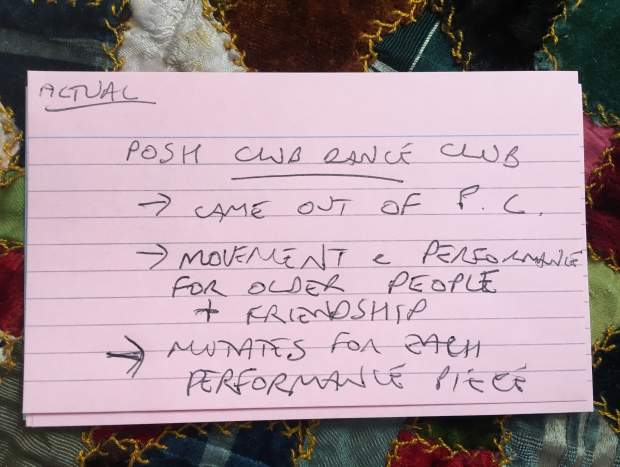 ACTUAL
POSH CLUB DANCE CLUB
→ CAME OUT OF P.C.
→ MOVEMENT & PERFORMANCE
FOR OLDER PEOPLE
+ FRIENDSHIP
→ MUTATES FOR EACH
PERFORMANCE PIECE